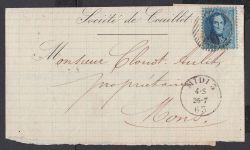 Société de Couillet
Monsieur Clouet
propriétaire
Mons.
MIDI 5
4-S
26-7
63